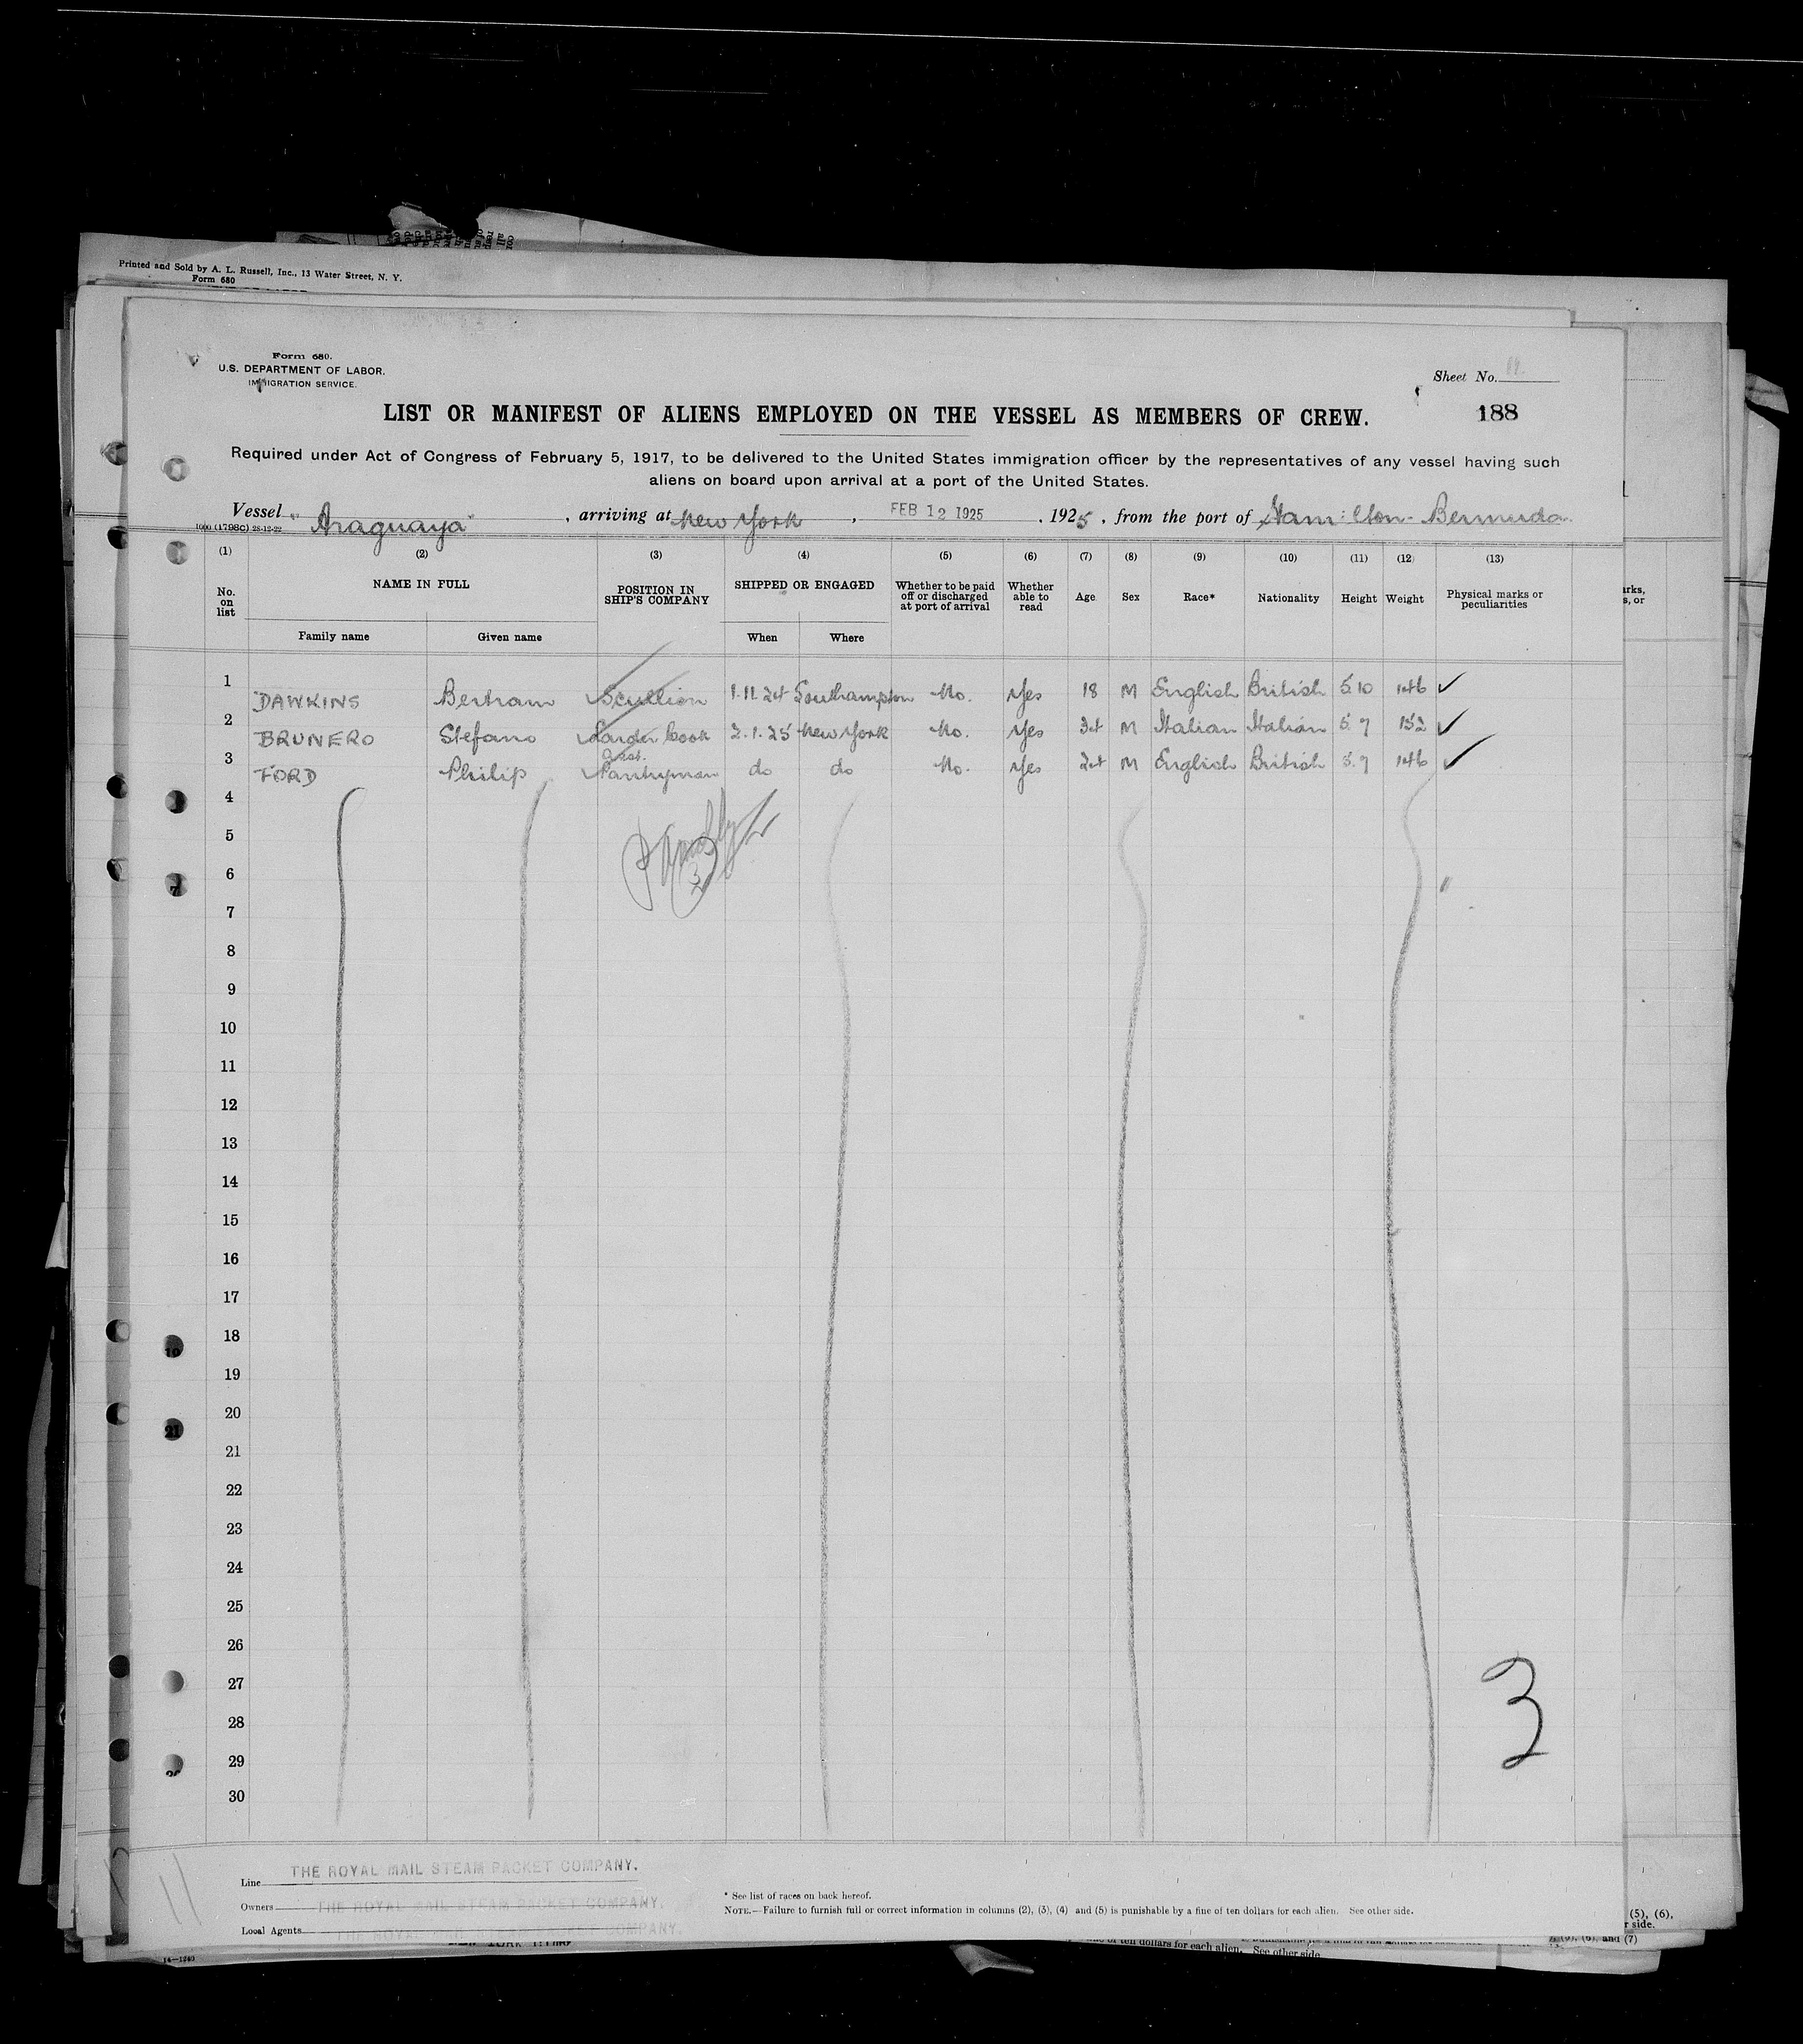 Printed and Sold by A. L. Russell, Inc., 13 Water Street, N. Y.
Form 680
Form 680.
U.S. DEPARTMENT OF LABOR.
IMMIGRATION SERVICE.
Sheet No.
188
LIST OR MANIFEST OF ALIENS EMPLOYED ON THE VESSEL AS MEMBERS OF CREW.
Required under Act of Congress of February 5, 1917, to be delivered to the United States immigration officer by the representatives of any vessel having such
aliens on board upon arrival at a port of the United States.
Vessel "Araguaya", arriving at New York, FEB 12 1925, 1925, from the port of Hamilton - Bermuda.
1000 (1798C) 28-12-22
(1) (2) (3) (4) (5) (6) (7) (8) (9) (10) (11) (12) (13)
No. on list NAME IN FULL POSITION IN SHIP'S COMPANY SHIPPED OR ENGAGED Whether to be paid off or discharged at port of arrival Whether able to read Age Sex Race* Nationality Height Weight Physical marks or peculiarities
Family name Given name When Where
1 DAWKINS Bertram Scullion 1.11.24 Southampton No. Yes 18 M English British 5.10 146 ✓
2 BRUNERO Stefano Larder Cook 2.1.25 New York No. Yes 34 M Italian Italian 5.7 152 ✓
3 FORD Philip Asst. Pantryman do do No. Yes 24 M English British 5.7 146 ✓
4
5
6
7
8
9
10
11
12
13
14
15
16
17
18
19
20
21
22
23
24
25
26
27
28
29
30
3
11
Line THE ROYAL MAIL STEAM PACKET COMPANY.
Owners THE ROYAL MAIL STEAM PACKET COMPANY.
Local Agents THE ROYAL COMPANY.
* See list of races on back hereof.
NOTE.—Failure to furnish full or correct information in columns (2), (3), (4) and (5) is punishable by a fine of ten dollars for each alien. See other side.
14—1240
of ten dollars for each alien. See other side
(5), (6),
r side.
(5), (6), and (7)
arks,
s, or